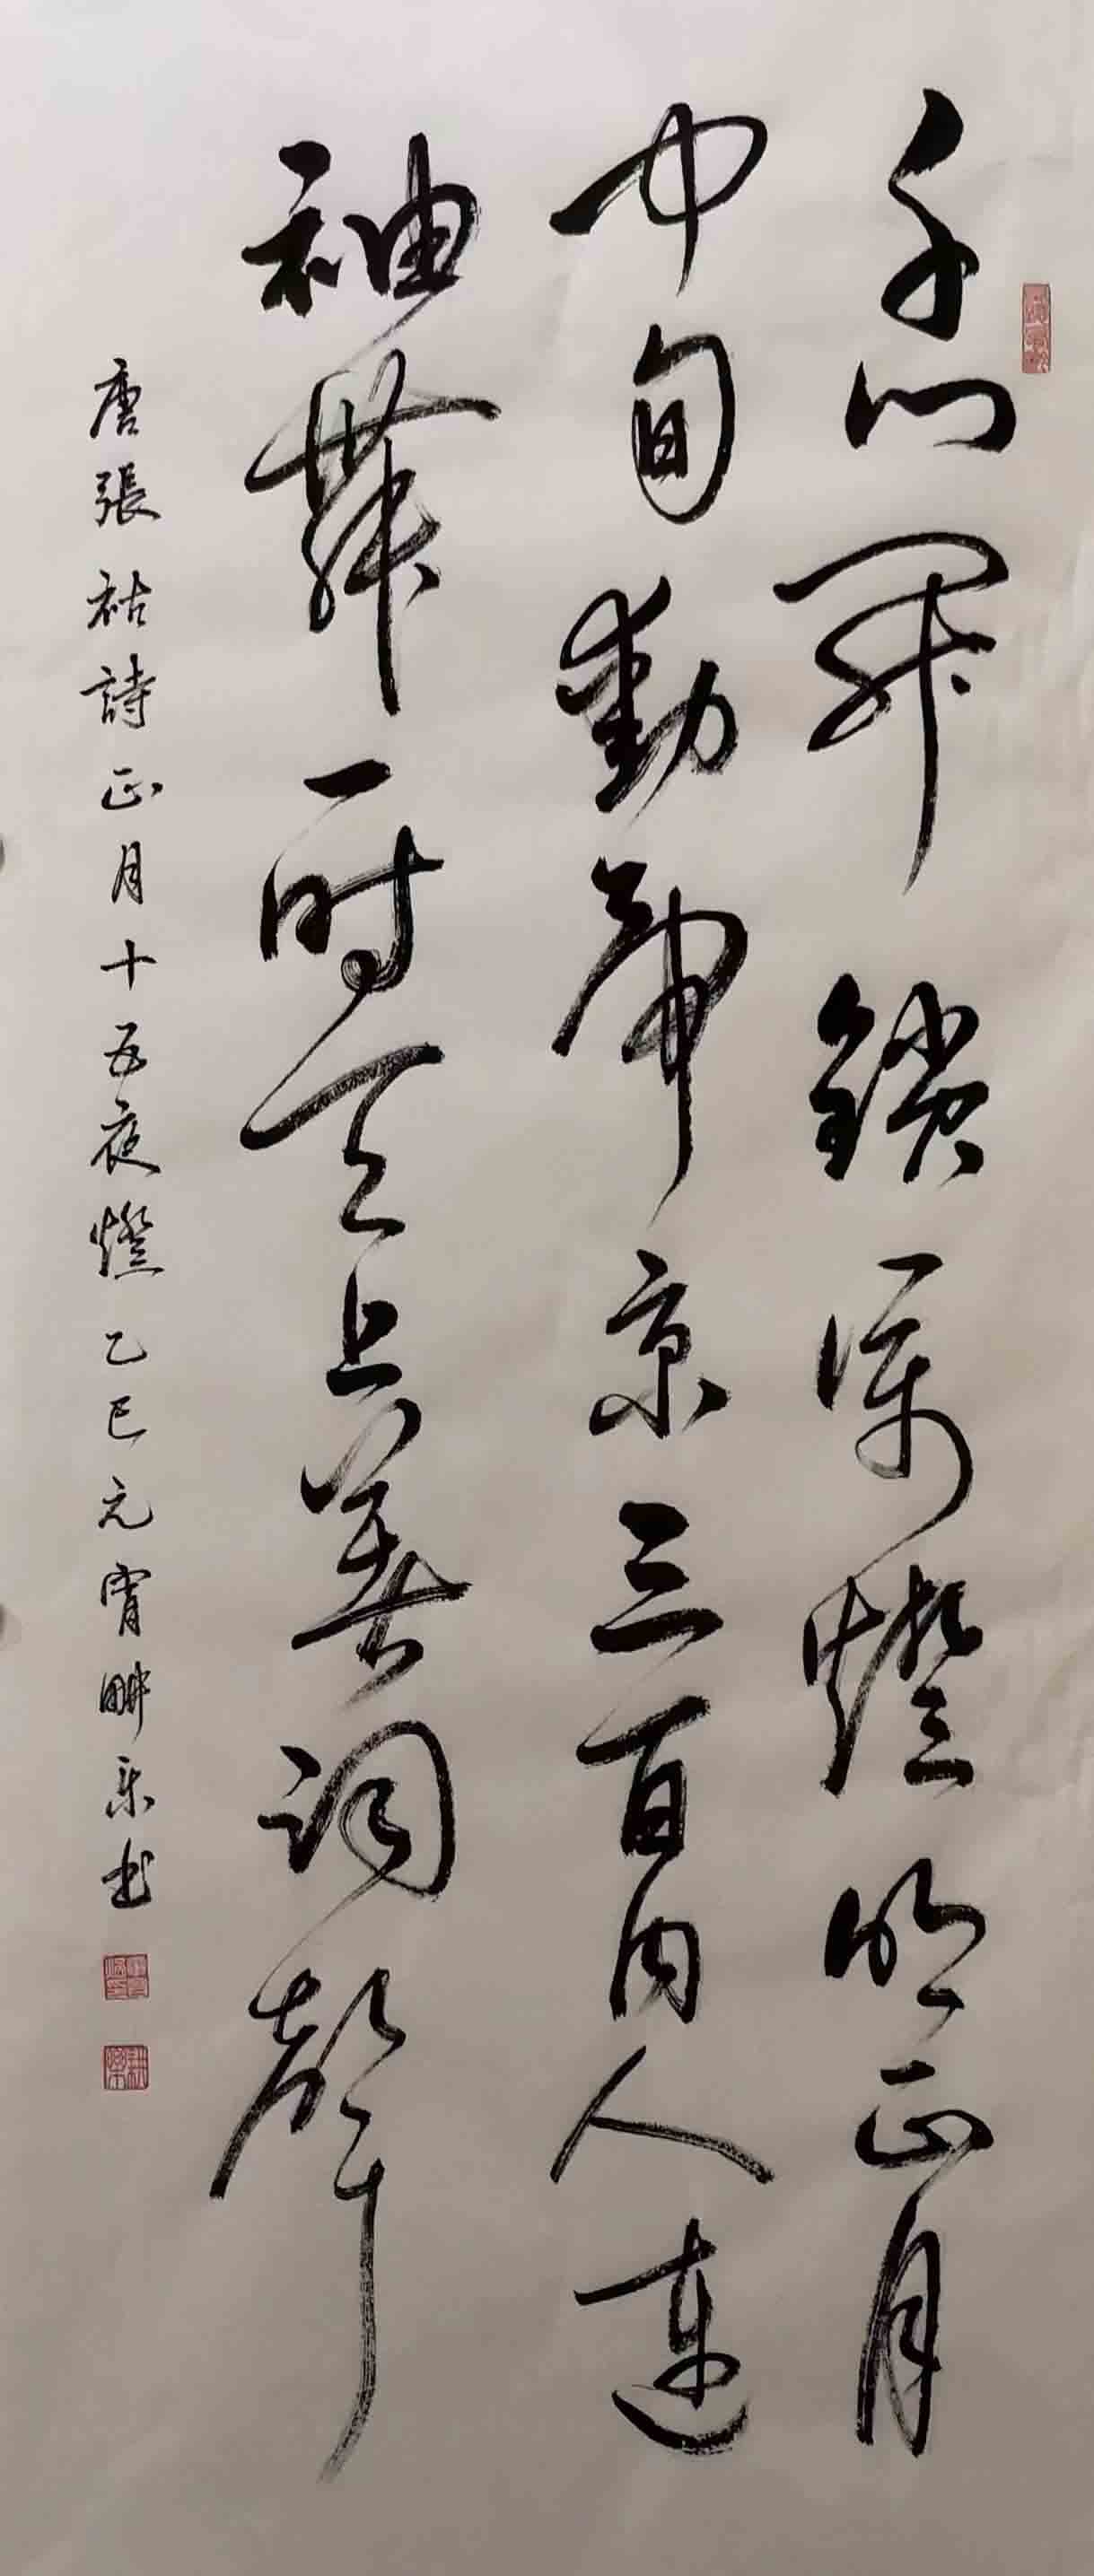 千門開鎖萬燈明正月
中旬動帝京三百内人連
袖舞一時天上著詞聲
唐張祜詩正月十五夜燈乙巳元宵畊樂書
耕樂